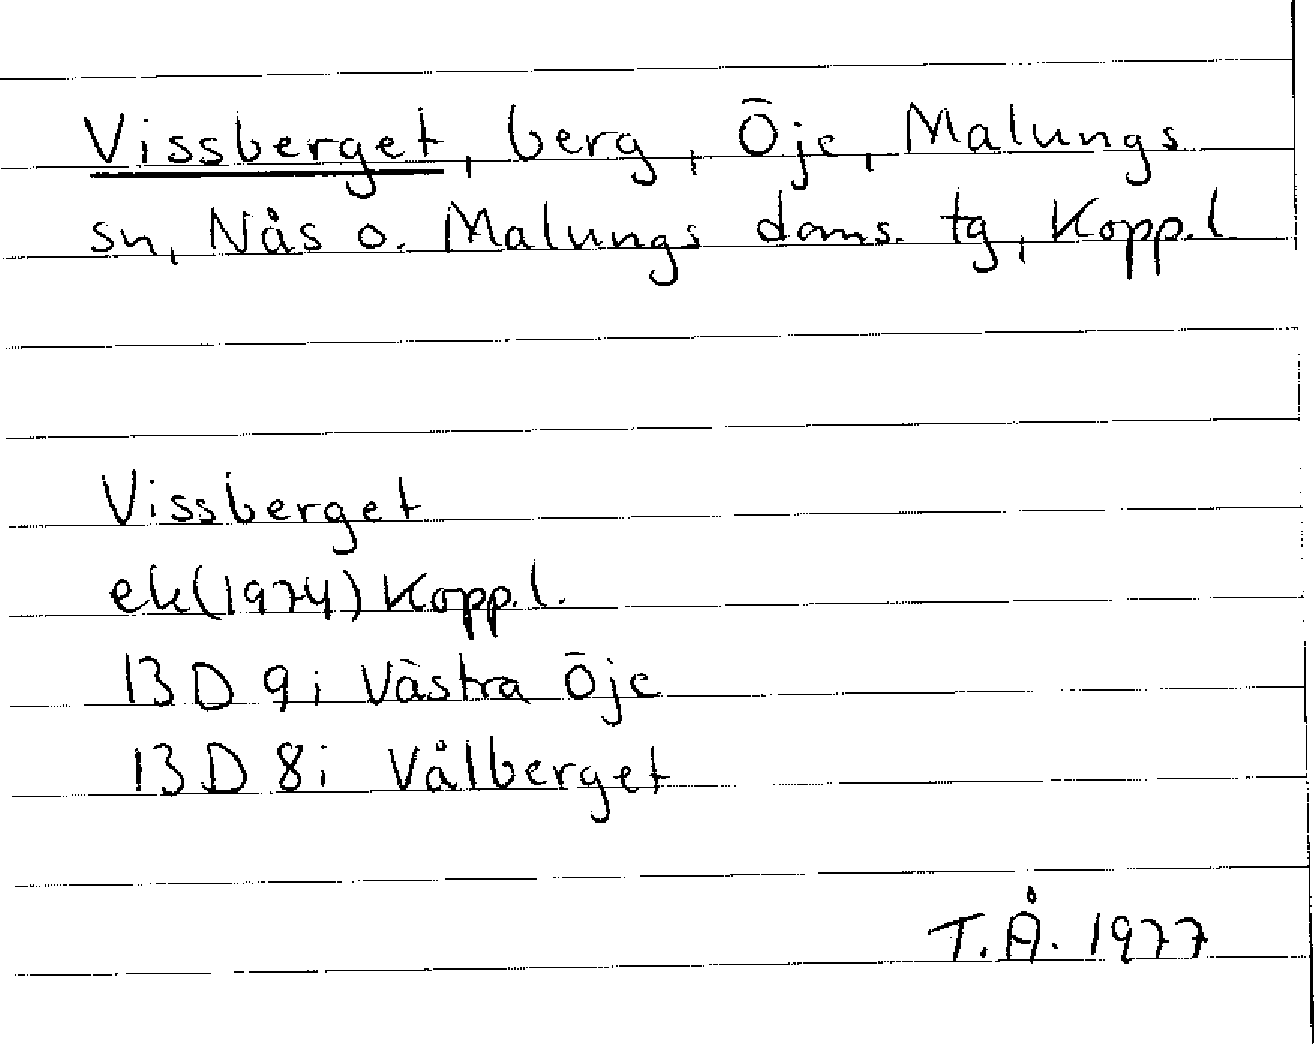 Vissberget, berg, Öje, Malungs
sn, Nås o. Malungs doms. tg, Kopp.l
Vissberget
ek(1974) Kopp.l.
13 D 9i Västra Öje
13 D 8i Vålberget
T.Å. 1977